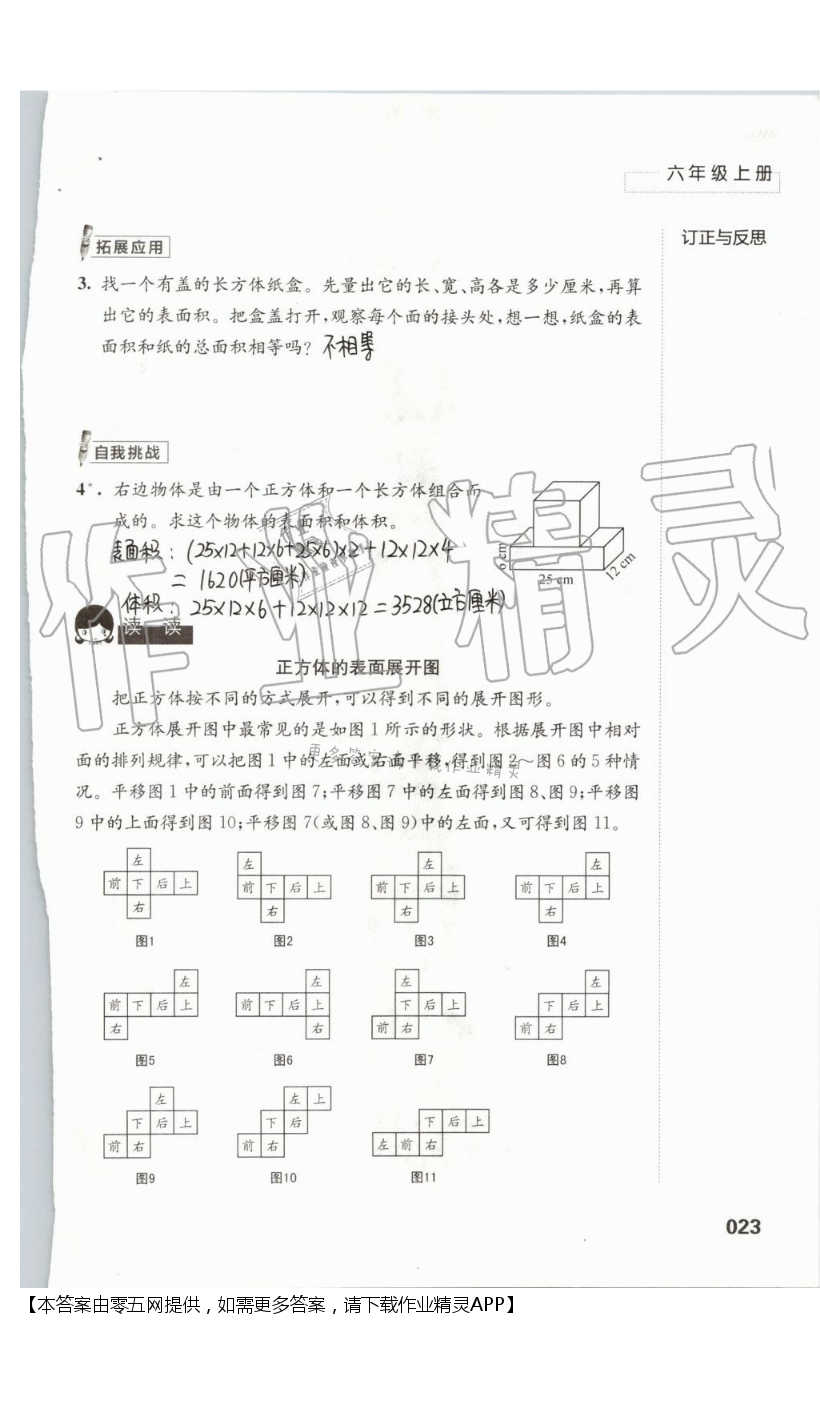 六年级上册
拓展应用
订正与反思
3. 找一个有盖的长方体纸盒。先量出它的长、宽、高各是多少厘米,再算
出它的表面积。把盒盖打开,观察每个面的接头处,想一想,纸盒的表
面积和纸的总面积相等吗? 不相等
自我挑战
4*. 右边物体是由一个正方体和一个长方体组合而
成的。求这个物体的表面积和体积。
表面积:(25×12+12×6+25×6)×2+12×12×4
=1620(平方厘米)
体积:25×12×6+12×12×12=3528(立方厘米)
6 cm
25 cm
12 cm
读一读
正方体的表面展开图
把正方体按不同的方式展开,可以得到不同的展开图形。
正方体展开图中最常见的是如图1所示的形状。根据展开图中相对
面的排列规律,可以把图1中的左面或右面平移,得到图2~图6的5种情
况。平移图1中的前面得到图7;平移图7中的左面得到图8、图9;平移图
9中的上面得到图10;平移图7(或图8、图9)中的左面,又可得到图11。
左 左 左 左
前 下 后 上 前 下 后 上 前 下 后 上 前 下 后 上
右 右 右 右
图1 图2 图3 图4
左 左 左 左
前 下 后 上 前 下 后 上 下 后 上 下 后 上
右 右 前 右 前 右
图5 图6 图7 图8
左 左 上
下 后 上 下 后 下 后 上
前 右 前 右 左 前 右
图9 图10 图11
023
作业精灵
【本答案由零五网提供,如需更多答案,请下载作业精灵APP】